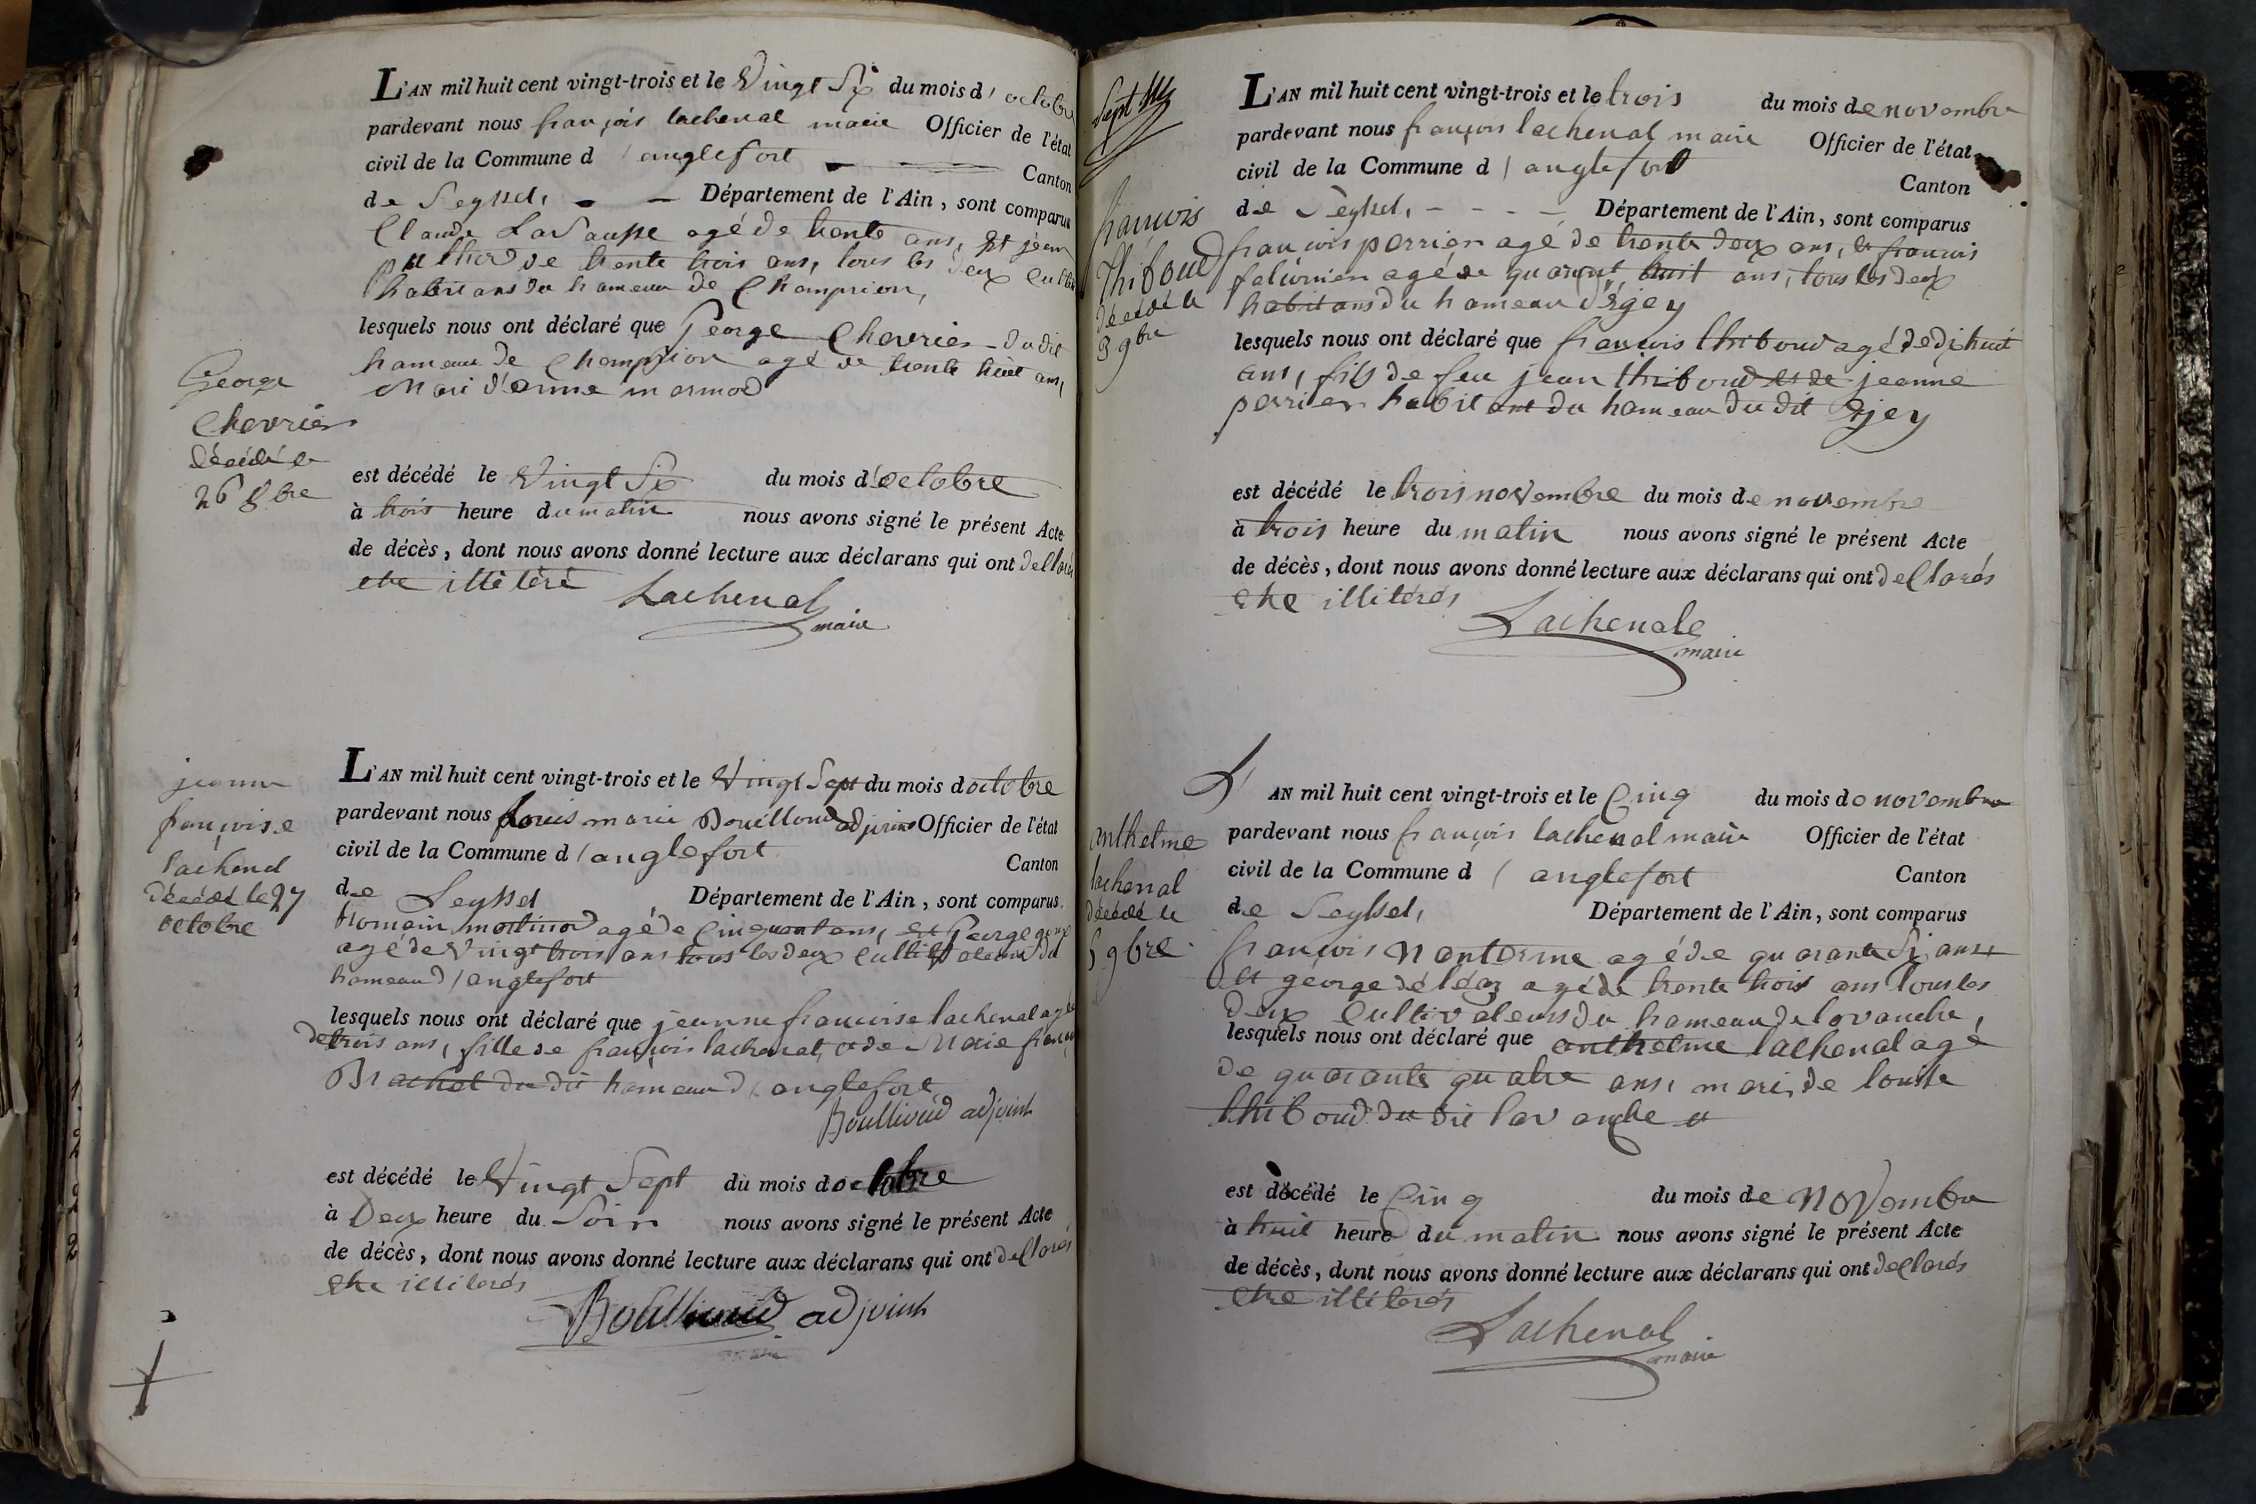 L'AN mil huit cent vingt-trois et le Vingt Six du mois d'octobre
pardevant nous françois lachenal maire Officier de l'état
civil de la Commune d'anglefort Canton
de Seyssel, Département de l'Ain, sont comparus
Claude LaSausse agé de trente ans, Et jean
de trente trois ans, tous les deux
habitans du hameau de Champrion,
lesquels nous ont déclaré que George Chevrier dudit
hameau de Champrion agé de trente huit ans,
Mari d'anne marmod
George
Chevrier
décédé le
26 8bre
est décédé le Vingt Six du mois d'octobre
à trois heure du matin nous avons signé le présent Acte
de décès, dont nous avons donné lecture aux déclarans qui ont déclaré
etre illitéré
Lachenal
maire
jeanne
françoise
lachenal
décédé le 27
octobre
L'AN mil huit cent vingt-trois et le Vingt Sept du mois doctobre
pardevant nous Louis marie Boullioud adjoint Officier de l'état
civil de la Commune d'anglefort Canton
de Seyssel Département de l'Ain, sont comparus
Romain martinod agé de Cinquant ans, et George
agé de Vingt trois ans tous les deux Cultivateurs du
hameau d'anglefort
lesquels nous ont déclaré que jeanne francoise lachenal agée
de trois ans, fille de françois lachenal, et de Marie
Brachet du dit hameau d'anglefort
Boullioud adjoint
est décédé le Vingt Sept du mois doctobre
à Deux heure du Soir nous avons signé le présent Acte
de décès, dont nous avons donné lecture aux déclarans qui ont declarés
etre illiterés
Boullioud adjoint
Sept
francois
Thiboud
décédé le
3 9bre
L'AN mil huit cent vingt-trois et le trois du mois de novembre
pardevant nous françois lachenal maire Officier de l'état
civil de la Commune d'anglefort Canton
de Seyssel, Département de l'Ain, sont comparus
francois perrier agé de trente deux ans, et francois
agé de quarant huit ans, tous les deux
habitans du hameau d'Ejey
lesquels nous ont déclaré que francois thiboud agé de dixhuit
ans, fils de feu jean thiboud et de jeanne
perrier habitant du hameau du dit Ejey
est décédé le trois novembre du mois de novembre
à trois heure du matin nous avons signé le présent Acte
de décès, dont nous avons donné lecture aux déclarans qui ont declarés
etre illiterés
Lachenale
maire
anthelme
lachenal
décédé le
5 9bre
L'AN mil huit cent vingt-trois et le Cinq du mois de novembre
pardevant nous françois lachenal maire Officier de l'état
civil de la Commune d'anglefort Canton
de Seyssel, Département de l'Ain, sont comparus
francois Nanterme agé de quarante Six ans
Et george déléaz agé de trente trois ans tous les
deux Cultivateurs du hameau de lovanche,
lesquels nous ont déclaré que anthelme lachenal agé
de quarante quatre ans, mari de louise
thiboud du dit lavanche
est décédé le Cinq du mois de Novembre
à huit heure du matin nous avons signé le présent Acte
de décès, dont nous avons donné lecture aux déclarans qui ont declarés
etre illiterés
Lachenal
maire